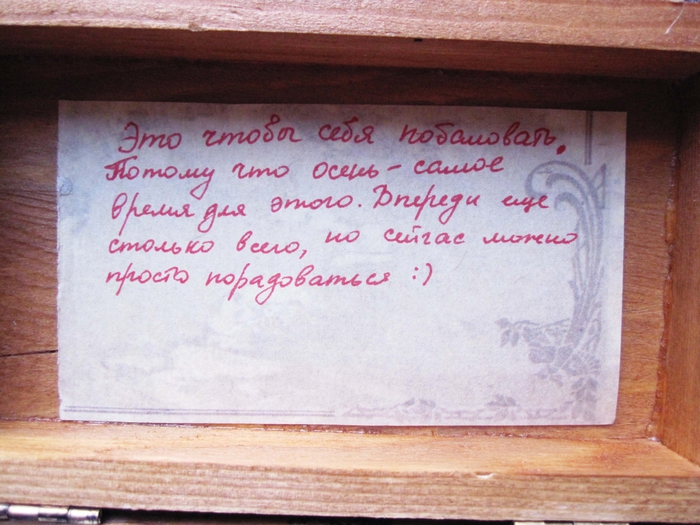 Это чтобы себя побаловать.
Потому что осень - самое
время для этого. Впереди еще
столько всего, но сейчас можно
просто порадоваться :)